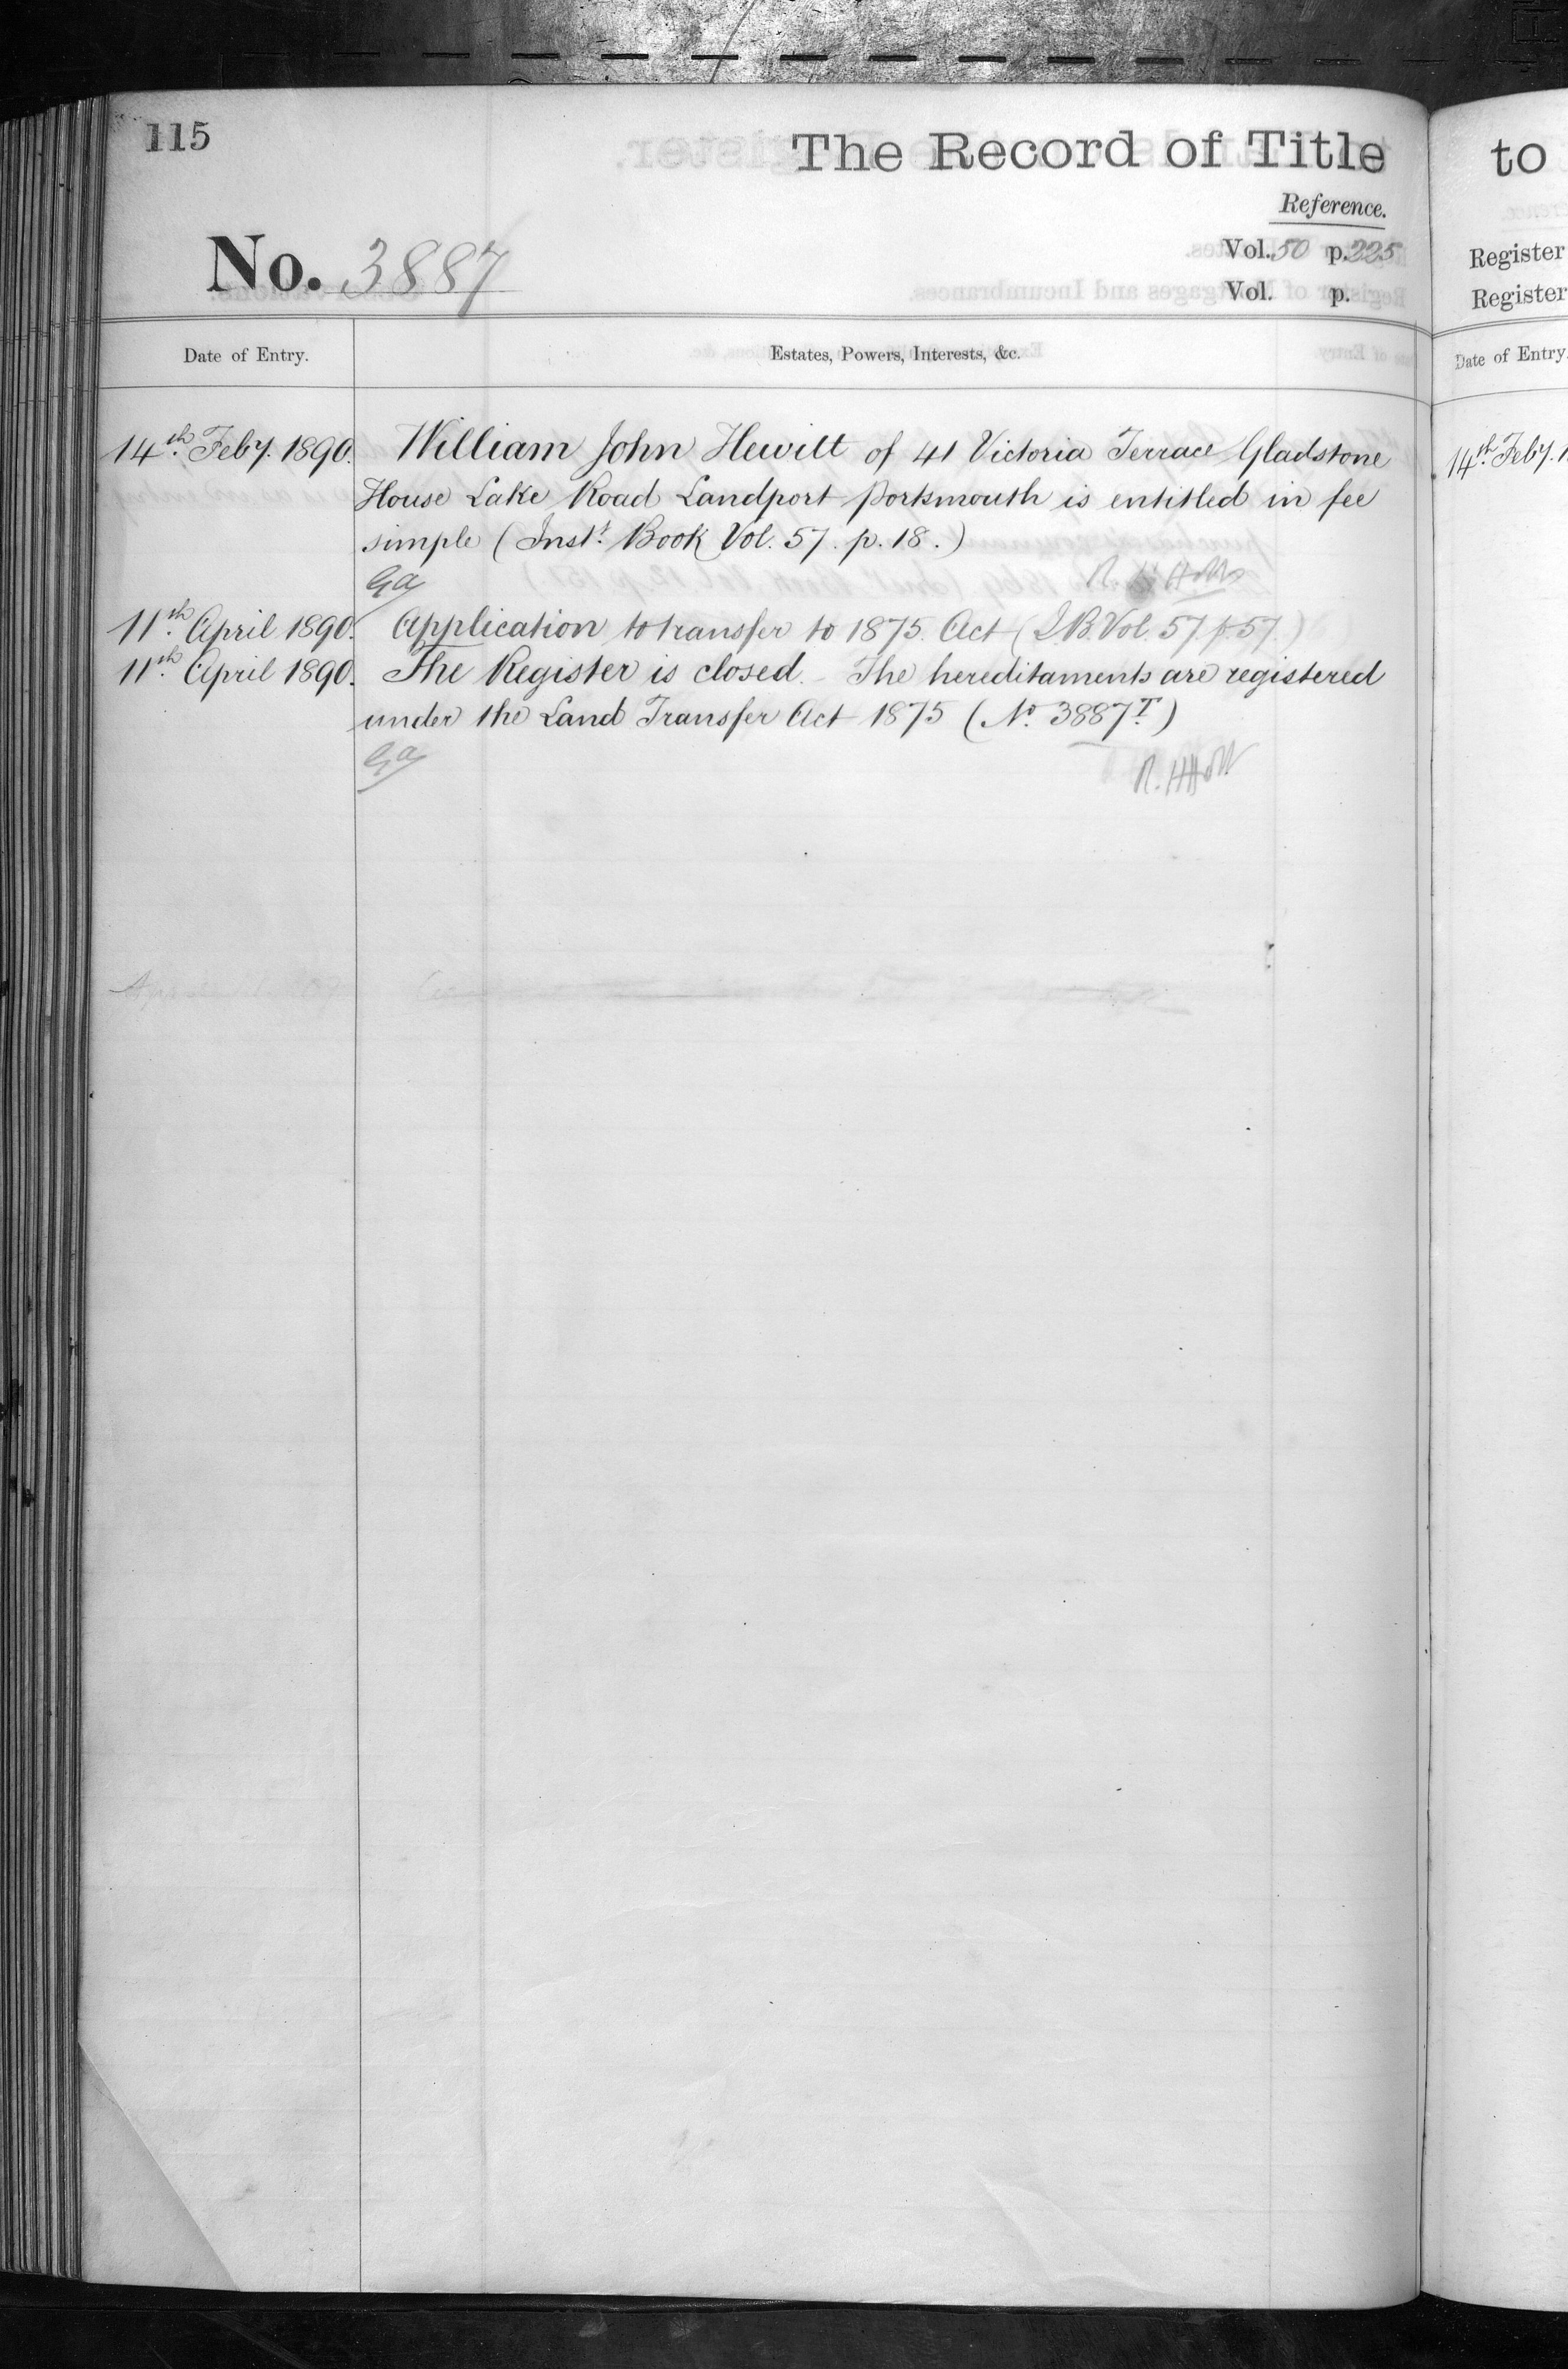 115
The Record of Title
to
Reference.
No. 3887
Vol. 50 p. 225
Vol. p.
Register
Register
Date of Entry.
Estates, Powers, Interests, &c.
Date of Entry
14th. Feby. 1890. William John Hewitt of 41 Victoria Terrace Gladstone
House Lake Road Landport Portsmouth is entitled in fee
simple (Inst.t Book Vol. 57. p. 18.)
11th. April 1890. Application to transfer to 1875 Act (I.B. Vol. 57. p. 57.)
11th. April 1890. The Register is closed. The hereditaments are registered
under the Land Transfer Act 1875 (No. 3887T)
R. H Holt
14th. Feby. 1